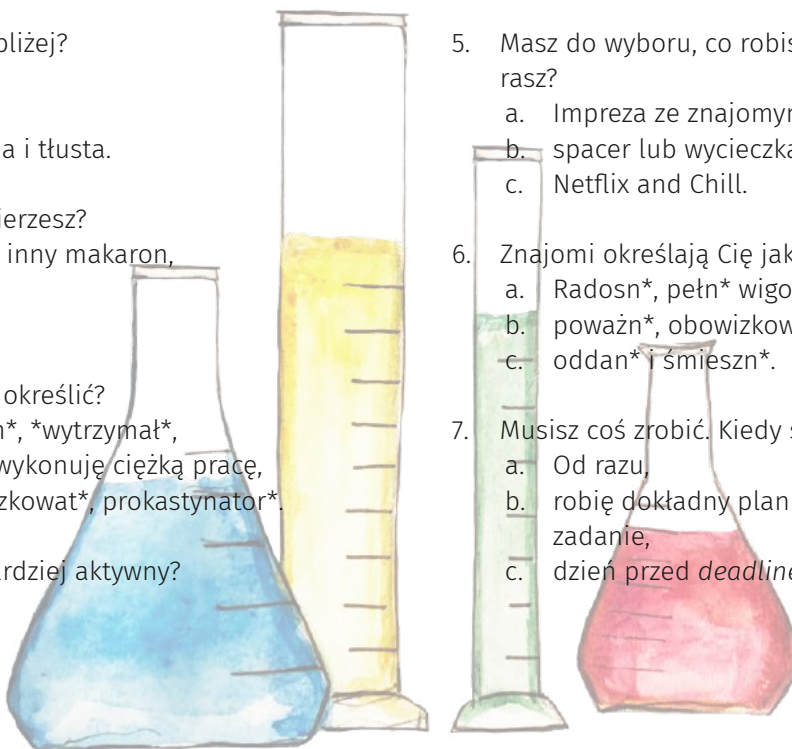 bliżej?
a i tłusta.
ierzesz?
inny makaron,
określić?
n*, *wytrzymał*,
wykonuję ciężką pracę,
zkowat*, prokastynator*.
ardziej aktywny?
5. Masz do wyboru, co robis
rasz?
a. Impreza ze znajomym
b. spacer lub wycieczka
c. Netflix and Chill.
6. Znajomi określają Cię jak
a. Radosn*, pełn* wigo
b. poważn*, obowizkow
c. oddan* i śmieszn*.
7. Musisz coś zrobić. Kiedy s
a. Od razu,
b. robię dokładny plan
zadanie,
c. dzień przed deadline